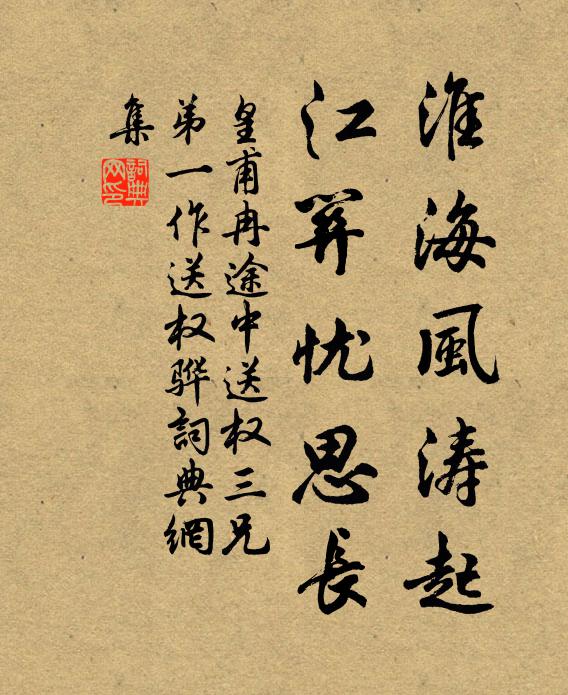 淮海風涛起
江关忧思長
皇甫冉途中送权三兄
弟一作送权骅詞典網
集
詞典
网印